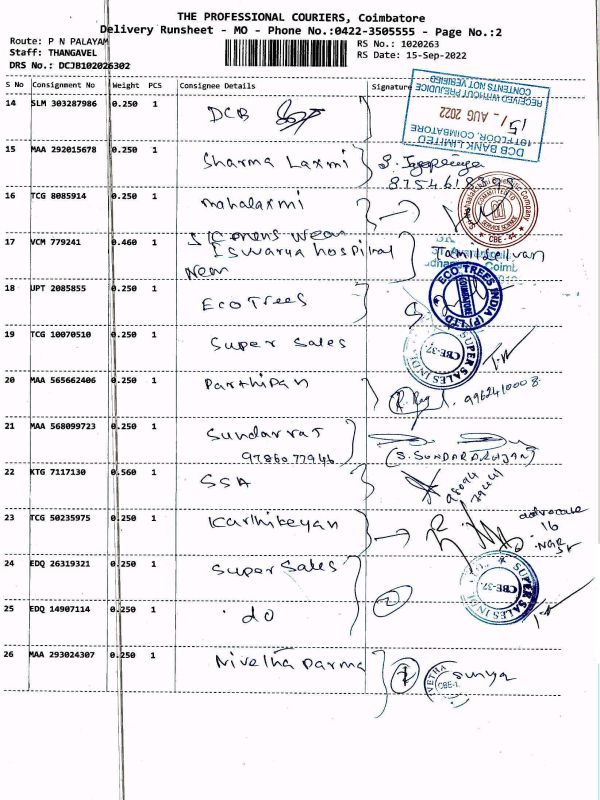 THE PROFESSIONAL COURIERS, Coimbatore
Delivery Runsheet - MO - Phone No.:0422-3505555 - Page No.:2
Route: P N PALAYAM
Staff: THANGAVEL
DRS No.: DCJB102026302
RS No.: 1020263
RS Date: 15-Sep-2022
S No Consignment No Weight PCS Consignee Details Signature
DCB BANK LIMITED
1ST FLOOR, COIMBATORE
15/ AUG 2022
RECEIVED WITHOUT PREJUDICE
CONTENTS NOT VERIFIED
14 SLM 303287986 0.250 1 DCB
15 MAA 292015678 0.250 1 Sharma Laxmi
16 TCG 8085914 0.250 1 mahalaxmi
CBE - 44
17 VCM 779241 0.460 1
Eswarya hospital
Near
Tamilselvan
18 UPT 2085855 0.250 1 Eco Trees
ECO TREES INDIA (P) LTD
COIMBATORE
19 TCG 10070510 0.250 1 Super Sales
SUPER SALES INDI
CBE-37.
20 MAA 565662406 0.250 1 Parthipan
R. Raj
9962410008
21 MAA 568099723 0.250 1 Sundarraj
9786077946
(S. SUNDARARAJAN)
22 KTG 7117130 0.560 1 SSA
98094
79441
23 TCG 50235975 0.250 1 Karthikeyan
advocate
16
24 EDQ 26319321 0.250 1 Super Sales
SUPER SALES INDI
CBE-37.
25 EDQ 14907114 0.250 1 do
2
26 MAA 293024307 0.250 1 Nivetha parma
1
Surya